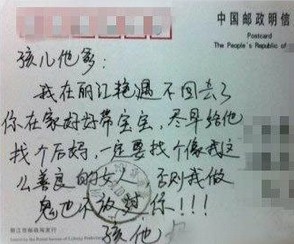 中国邮政明信
Postcard
The People's Republic of
孩儿他爹：
我在丽江艳遇不回去了
你在家好好带宝宝，尽早给他
找个后妈，一定要找个像我这
么善良的女人 否则我做
鬼也不放过你！！！
孩他
丽江市邮政局发行